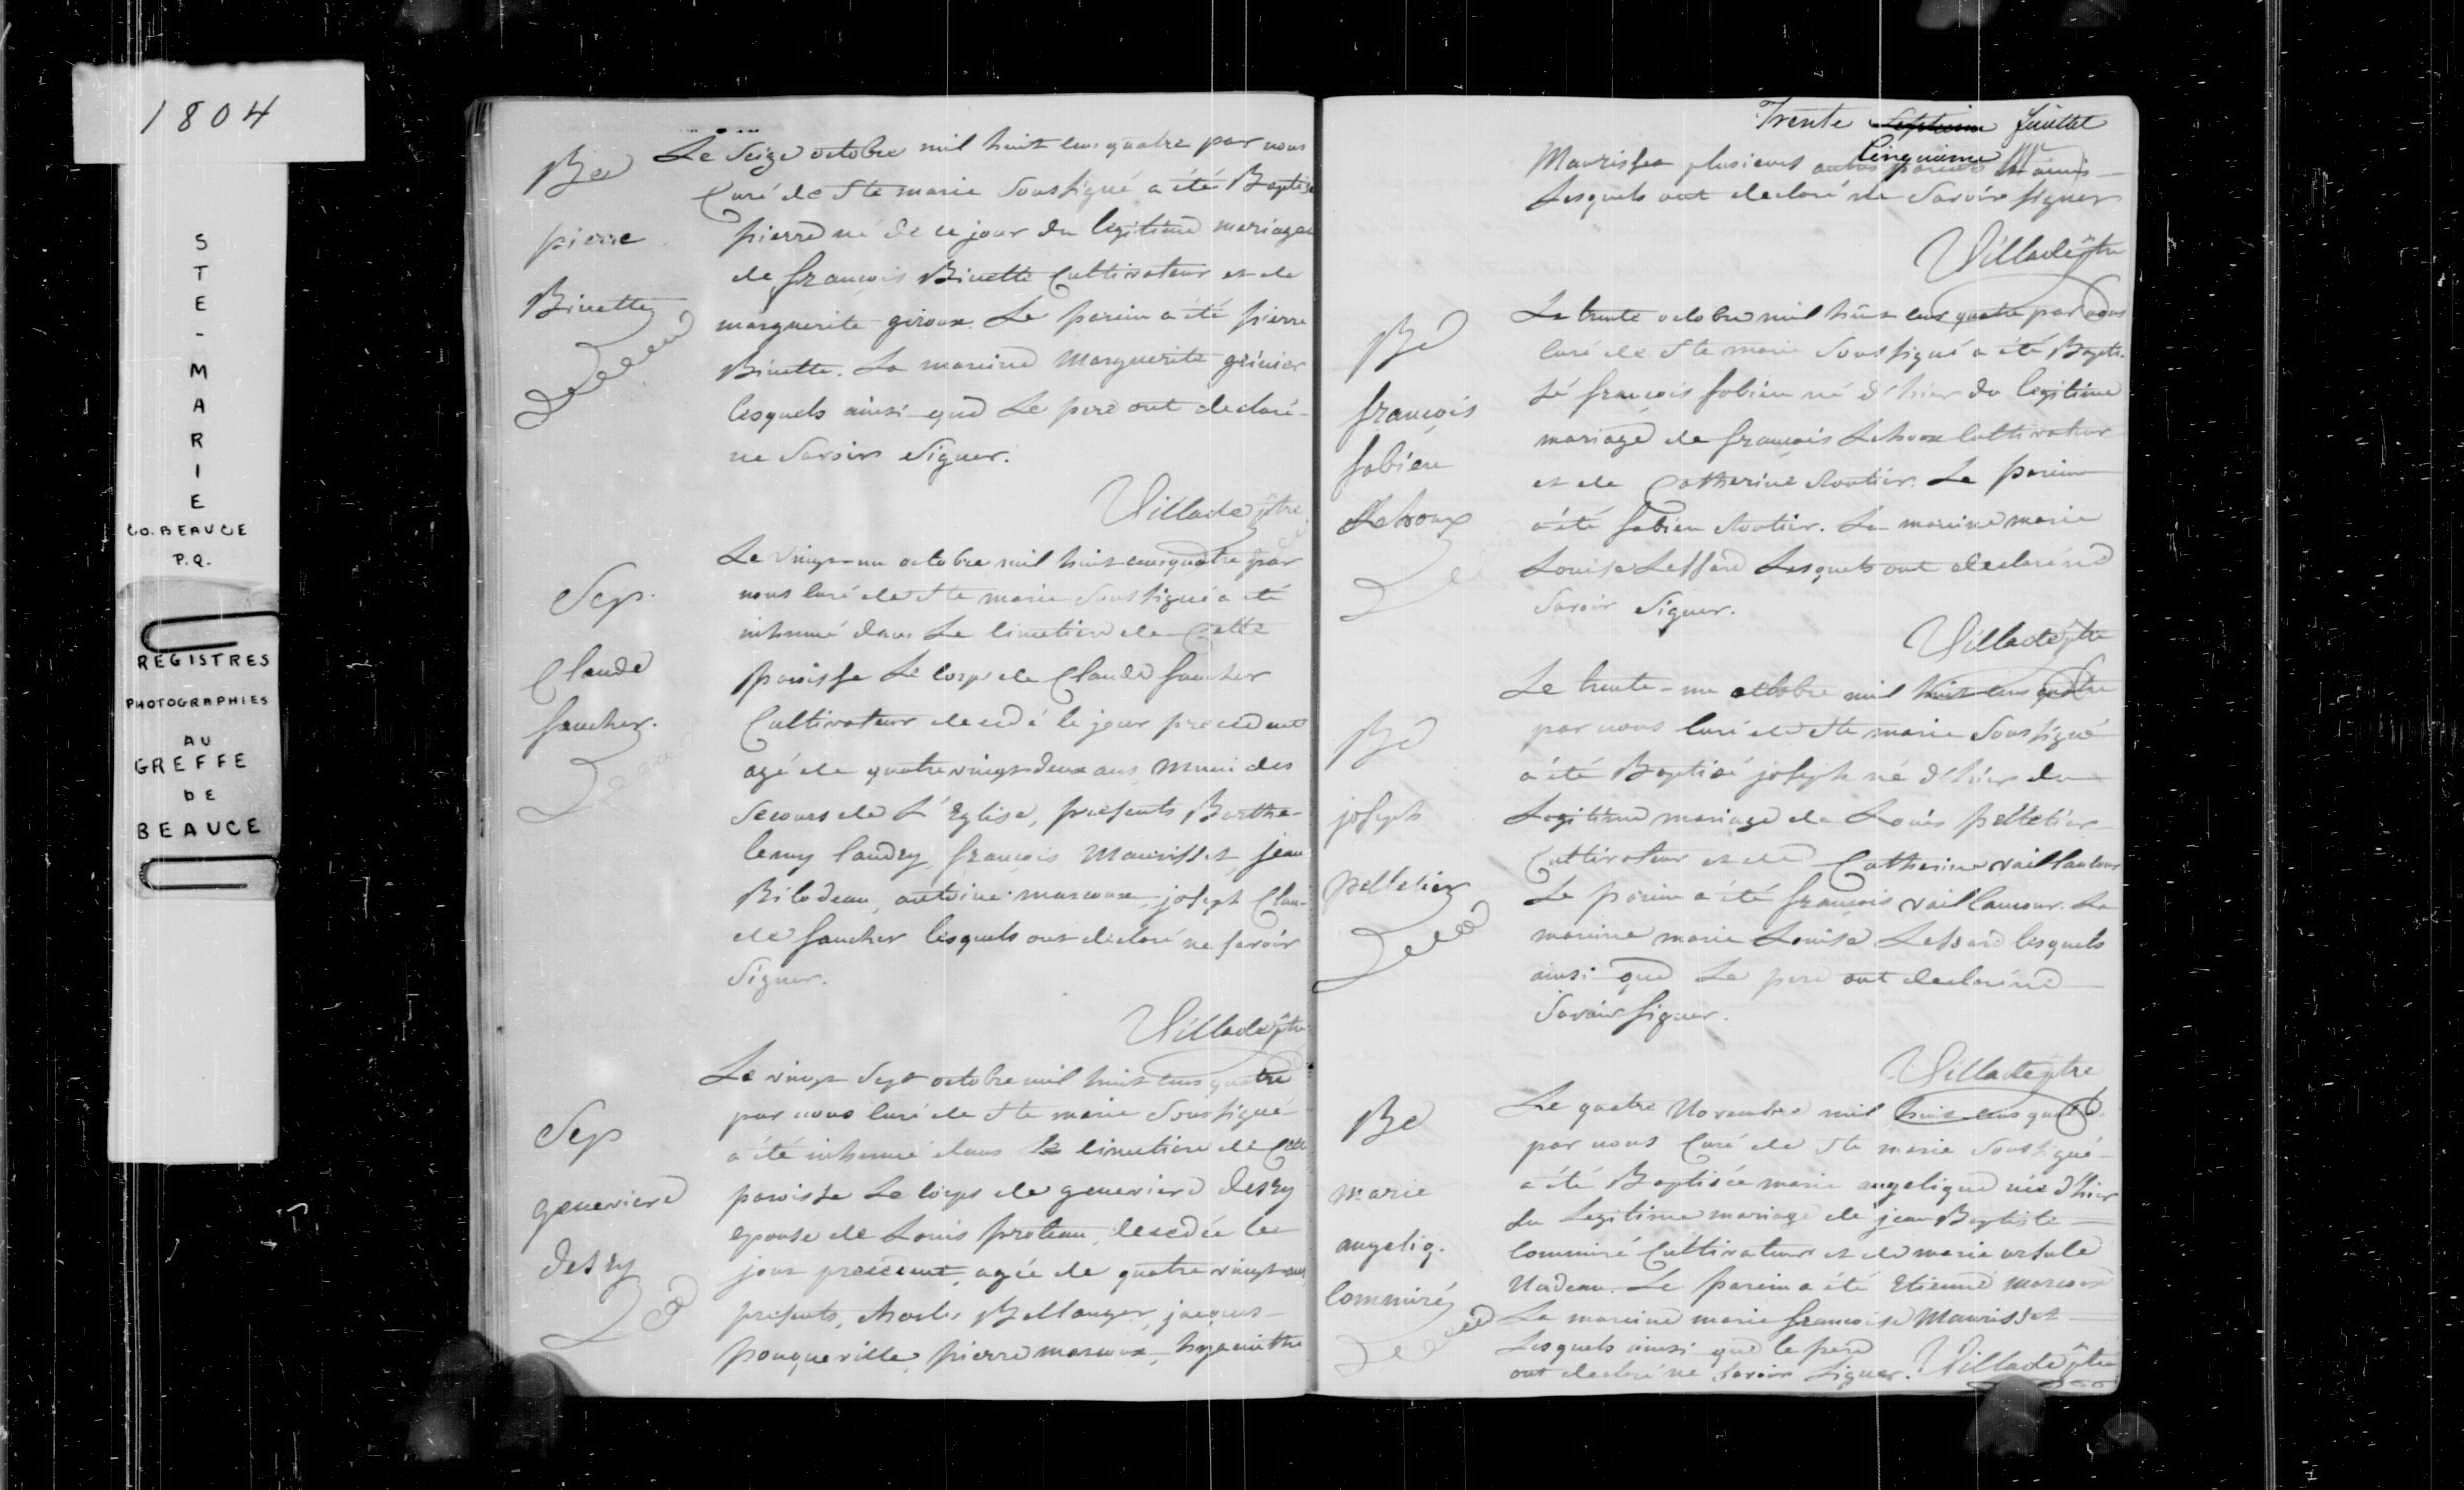 1804
STE-MARIE
CO. BEAUCE
P.Q.
REGISTRES
PHOTOGRAPHIES
AU
GREFFE
DE
BEAUCE
Be
pierre
Binette
Le Seize octobre mil huit cens quatre par nous
Curé de Ste marie Soussigné a été Baptisé
pierre né de ce jour du legitime mariage
de françois Binette Cultivateur et de
marguerite giroux. Le parein a été pierre
Binette. La mareine Marguerite grénier
lesquels ainsi que Le pere ont declaré
ne Savoir Signer.
Villade ptre
Sep.
Claude
faucher.
Le vingt-un octobre mil huit cens quatre par
nous Curé de Ste marie Soussigné a été
inhumé dans Le Cimetiere de Cette
paroisse Le Corps de Claude faucher
Cultivateur decedé le jour precedent
agé de quatre vingt deux ans muni des
Secours de L'Eglise, presents Barthe-
lemy landry, françois Maurisset, jean
Bilodeau, antoine marcoux, joseph Clau-
de faucher lesquels ont declaré ne savoir
Signer.
Villade ptre
Sep
genevieve
desry
Le vingt Sept octobre mil huit cens quatre
par nous Curé de Ste marie Soussigné
a été inhumé dans le Cimetiere de Cette
paroisse Le Corps de genevieve desry
epouse de Louis proteau, decedée le
jour precedent, agée de quatre vingt ans
presents, charles Bellanger, jacques
pouqueville, pierre marcoux, hyacinthe
Trente Septieme Juillet
Cinquieme
Maurisset plusieurs autres parens et amis
Lesquels ont declaré ne Savoir signer
Villade ptre
Be
françois
fabien
Lehoux
Le trente octobre mil huit cens quatre par nous
Curé de Ste marie Soussigné a été Bapti-
sé françois fabien né d'hier du legitime
mariage de françois Lehoux Cultivateur
et de Catherine cloutier. Le parein
a été fabien cloutier. La mareine marie
Louise Lessard Lesquels ont declaré ne
Savoir Signer.
Villade ptre
Be
joseph
pelletier
Le trente-un octobre mil huit cens quatre
par nous Curé de Ste marie Soussigné
a été Baptisé joseph né d'hier du
Legitime mariage de Louis pelletier
Cultivateur et de Catherine vaillancour
Le parein a été françois vaillancour. La
mareine marie Louise Lessard lesquels
ainsi que Le pere ont declaré ne
Savoir signer.
Villade ptre
Be
marie
angeliq.
Commiré
Le quatre Novembre mil huit cens quatre
par nous Curé de Ste marie Soussigné
a été Baptisée marie angelique née d'hier
du Legitime mariage de jean Baptiste
Commiré Cultivateur et de marie ursule
Nadeau. Le parein a été Etienne marcoux
La mareine marie françoise Maurisset
Lesquels ainsi que le pere
ont declaré ne Savoir Signer. Villade ptre